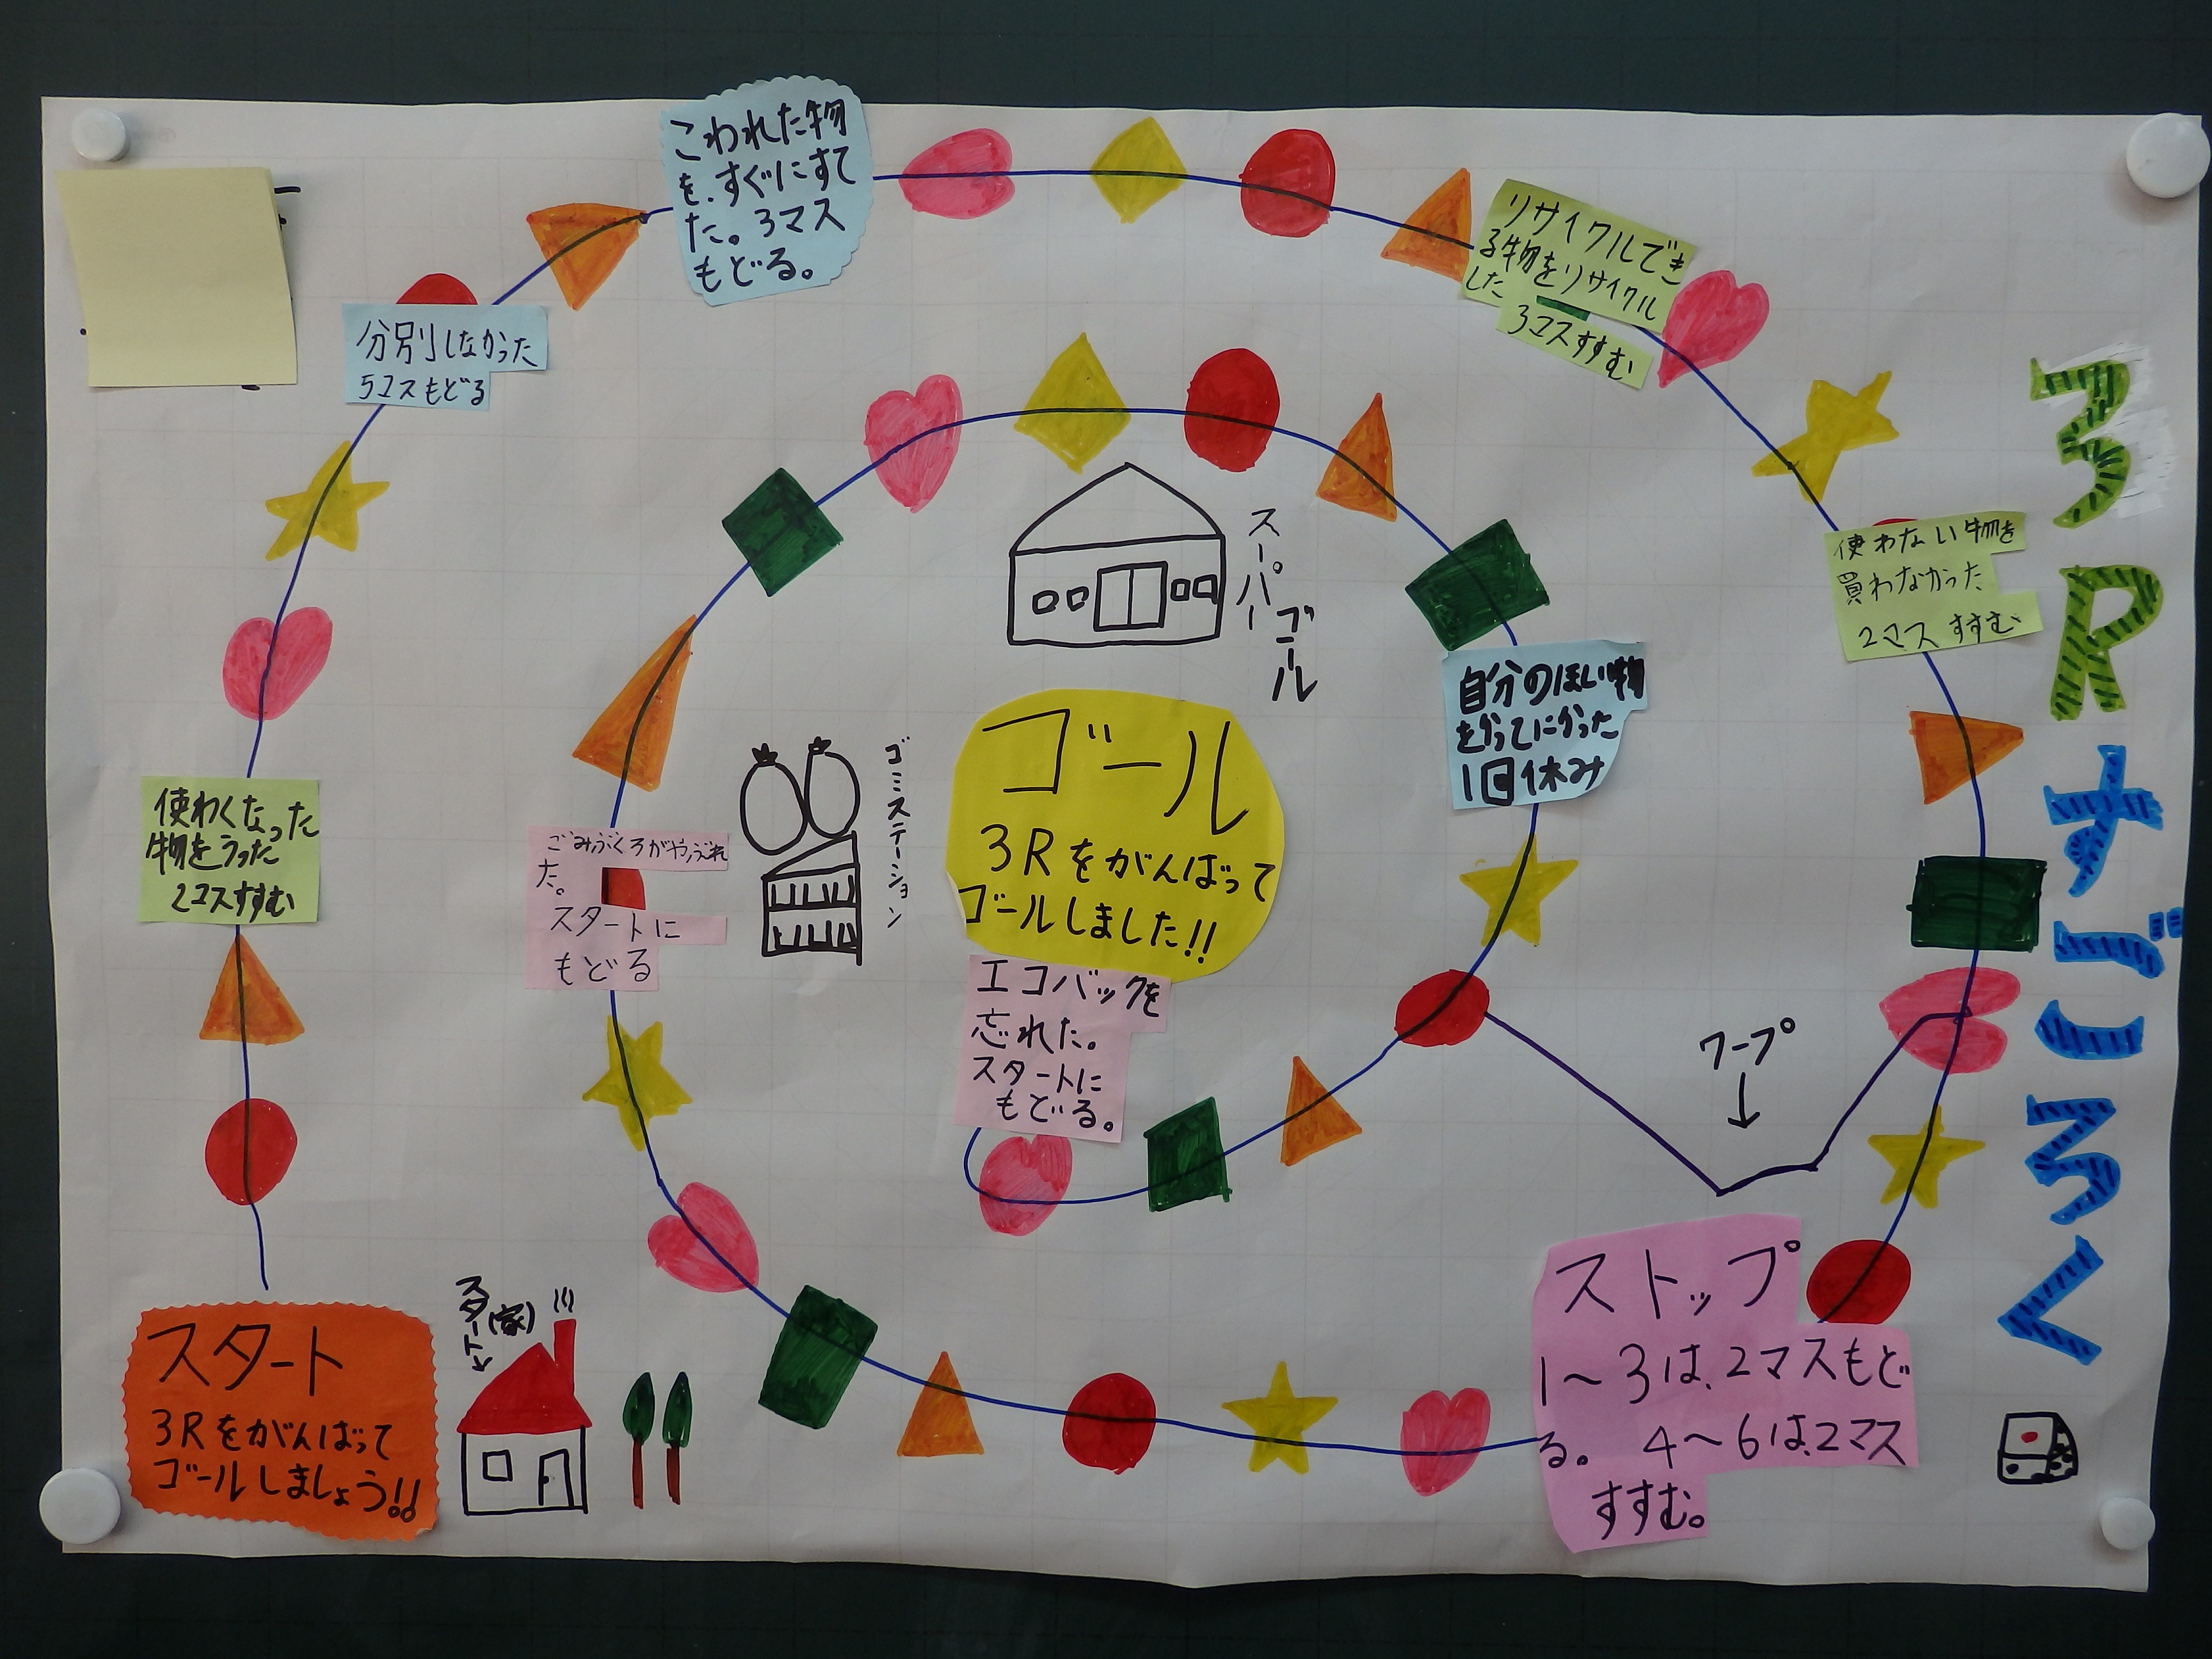 3Rすごろく
スタート
3Rをがんばって
ゴールしましょう!!
スタート(家)
使わくなった
物をうった
2コスすすむ
分別しなかった
5コスもどる
こわれた物
を、すぐにすて
た。3マス
もどる。
リサイクルでき
る物をリサイクル
した
3コスすすむ
使わない物を
買わなかった
2マス すすむ
ワープ
ストップ
1〜3は、2マスもど
る。 4〜6は、2マス
すすむ。
ごみぶくろがやぶれ
た。
スタートに
もどる
ゴミステーション
スーパー
ゴール
自分のほしい物
をかってにかった
1回休み
エコバックを
忘れた。
スタートに
もどる。
ゴール
3Rをがんばって
ゴールしました!!